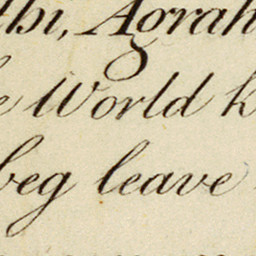 thi, Agrah
World k
beg leave